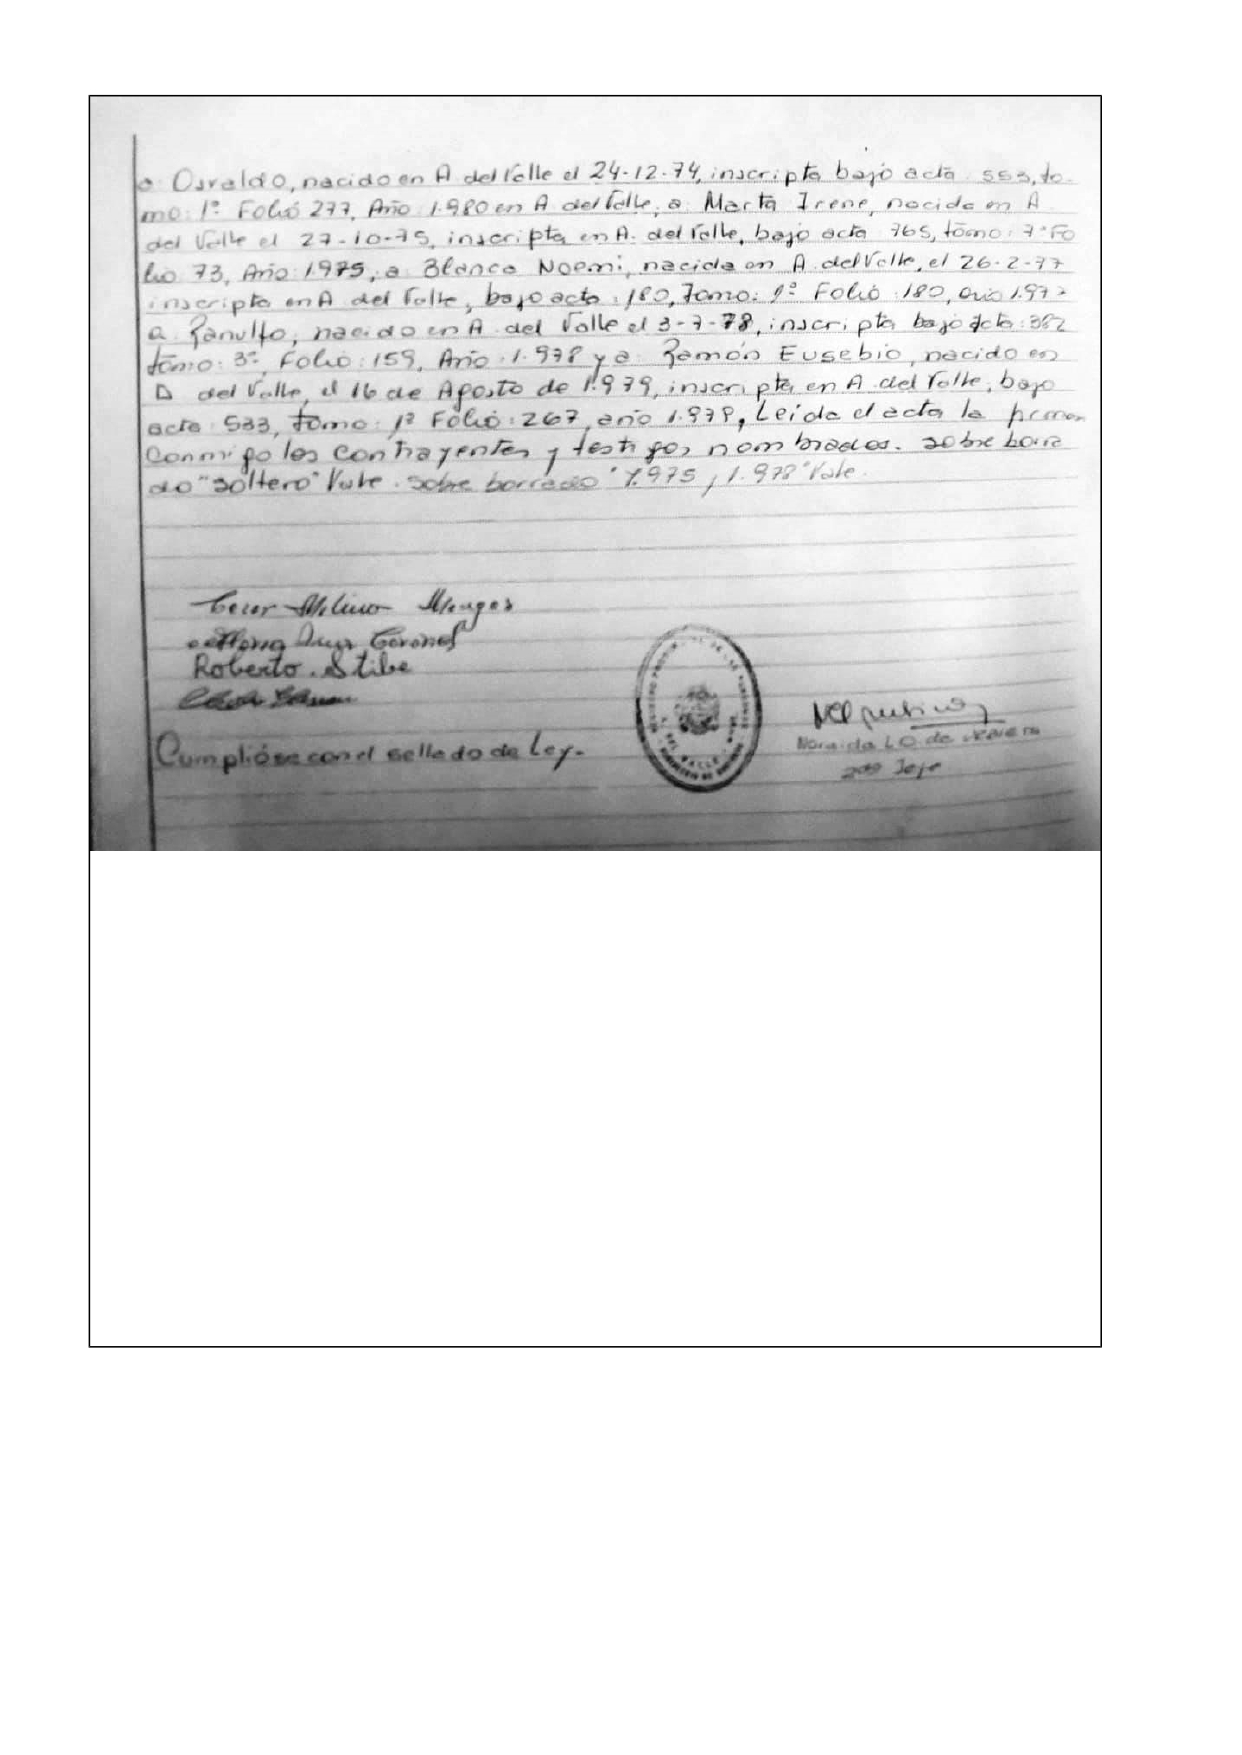 a: Osvaldo, nacido en A. del Valle el 24-12-74, inscripta bajo acta: 553, to-
mo: 1º Folio 277, Año 1.980 en A del Valle, a: Marta Irene, nacida en A
del Valle el 27-10-75, inscripta en A. del Valle, bajo acta 765, tomo: 7º Fo
lio 73, Año: 1.975, a Blanca Noemi, nacida en A. del Valle, el 26-2-77
inscripta en A del Valle, bajo acta: 180, Tomo: 1º Folio: 180, año 1.977
a Ranulfo, nacido en A. del Valle el 3-7-78, inscripta bajo acta: 382
tomo: 3º, Folio: 159, Año: 1.978 y a: Ramón Eusebio, nacido en
A del Valle, el 16 de Agosto de 1.979, inscripta en A. del Valle, bajo
acta: 533, tomo: 1º Folio: 267, año 1.979, Leida el acta la firman
conmigo los contrayentes y testigos nombrados. sobre borra
do "soltero" Vale. sobre borrado "1.975 y 1.978" Vale.
Meliton Monges
Coronel
Roberto. Stibe
Cumplióse con el sellado de Ley.-
Noraida L O de
2do Jefe